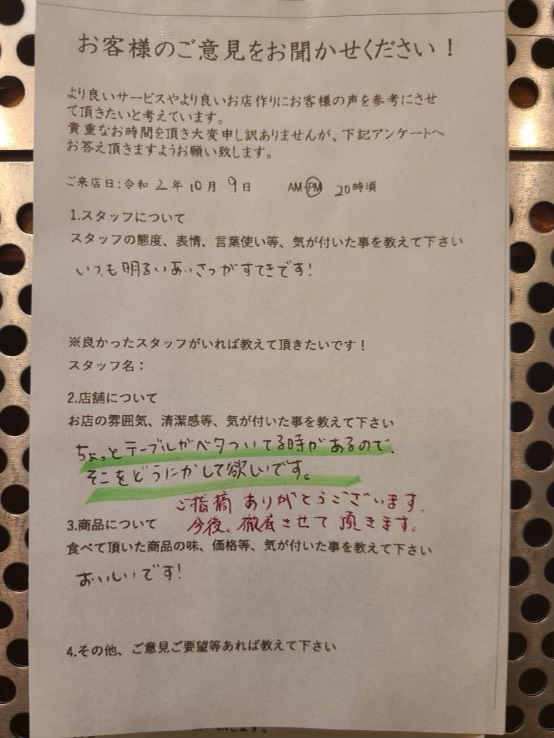 お客様のご意見をお聞かせください！
より良いサービスやより良いお店作りにお客様の声を参考にさせ
て頂きたいと考えています。
貴重なお時間を頂き大変申し訳ありませんが、下記アンケートへ
お答え頂きますようお願い致します。
ご来店日：令和 2 年 10 月 9 日 AM・PM 20 時頃
1.スタッフについて
スタッフの態度、表情、言葉使い等、気が付いた事を教えて下さい
いつも明るいあいさつがすてきです！
※良かったスタッフがいれば教えて頂きたいです！
スタッフ名：
2.店舗について
お店の雰囲気、清潔感等、気が付いた事を教えて下さい
ちょっとテーブルがベタついてる時があるので、
そこをどうにかして欲しいです。
ご指摘ありがとうございます。
今後、徹底させて頂きます。
3.商品について
食べて頂いた商品の味、価格等、気が付いた事を教えて下さい
おいしいです！
4.その他、ご意見ご要望等あれば教えて下さい